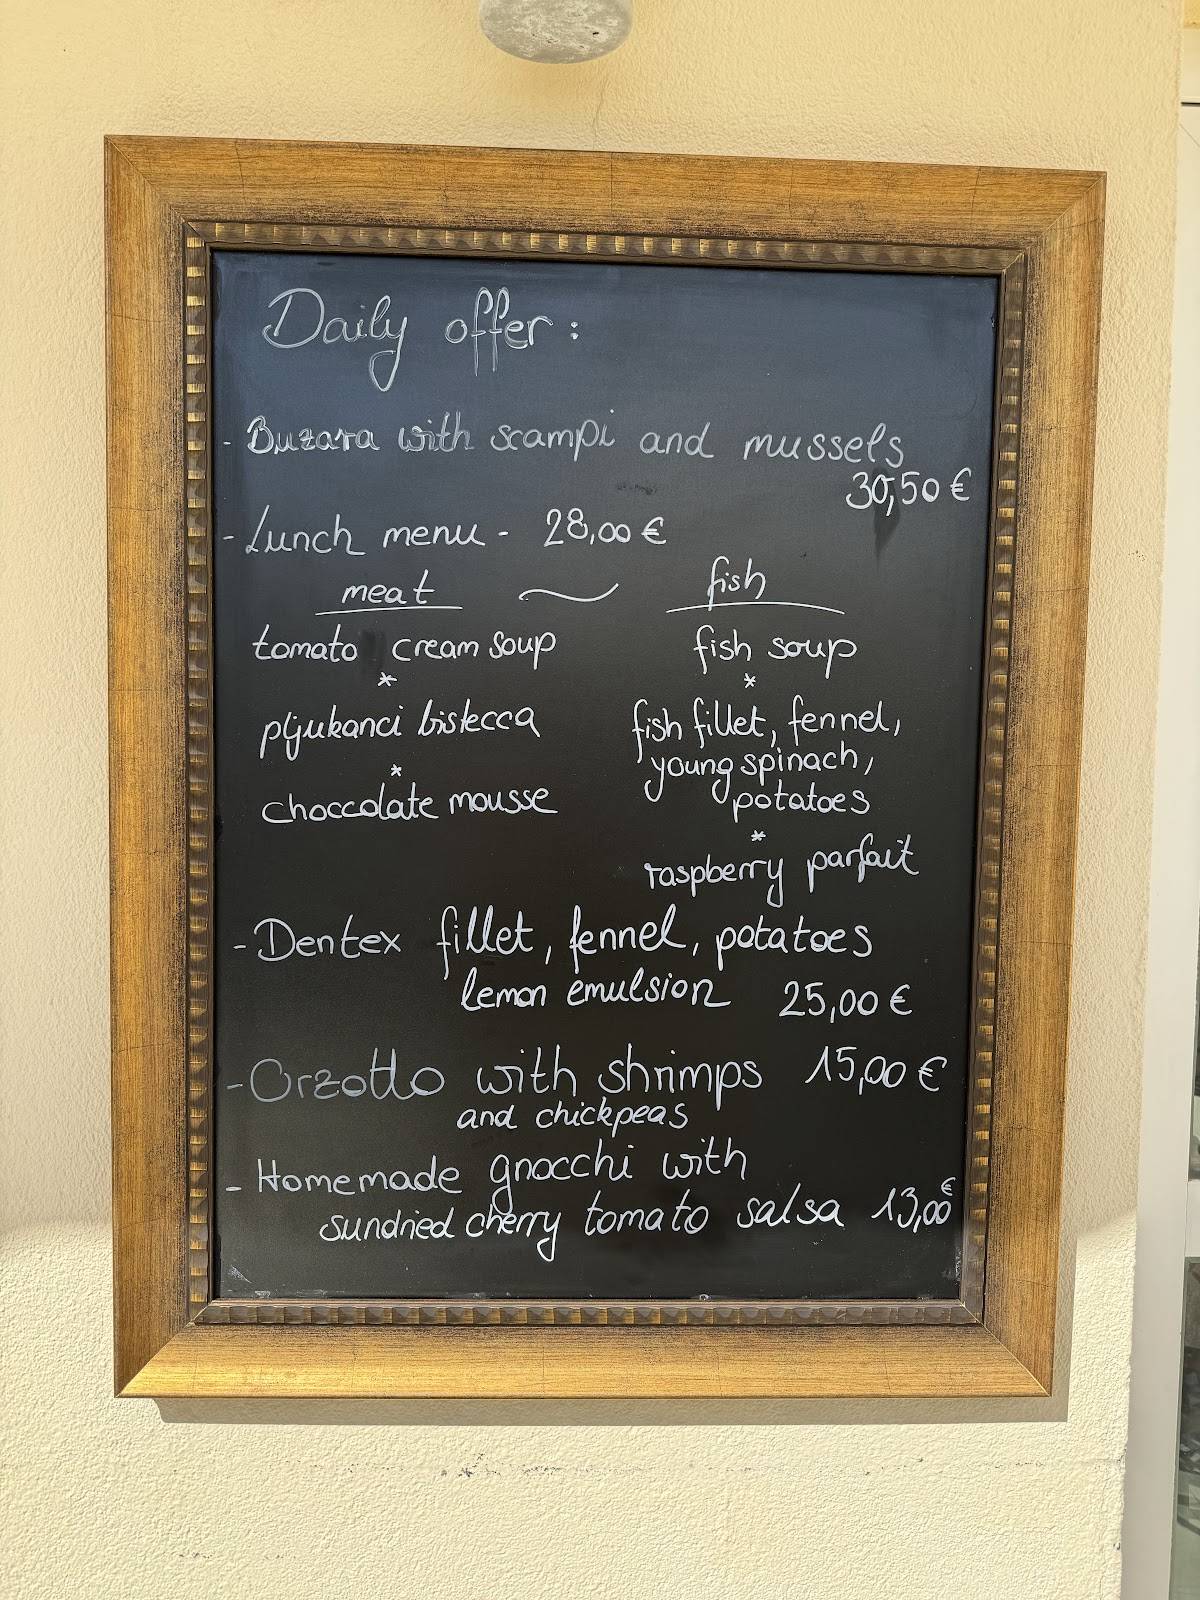 Daily offer:
- Buzara with scampi and mussels
30,50 €
- Lunch menu - 28,00 €
meat ~ fish
tomato cream soup
*
pljukanci bistecca
*
choccolate mousse
fish soup
*
fish fillet, fennel,
young spinach,
potatoes
*
raspberry parfait
- Dentex fillet, fennel, potatoes
lemon emulsion 25,00 €
- Orzotto with shrimps 15,00 €
and chickpeas
- Homemade gnocchi with
sundried cherry tomato salsa 13,00 €